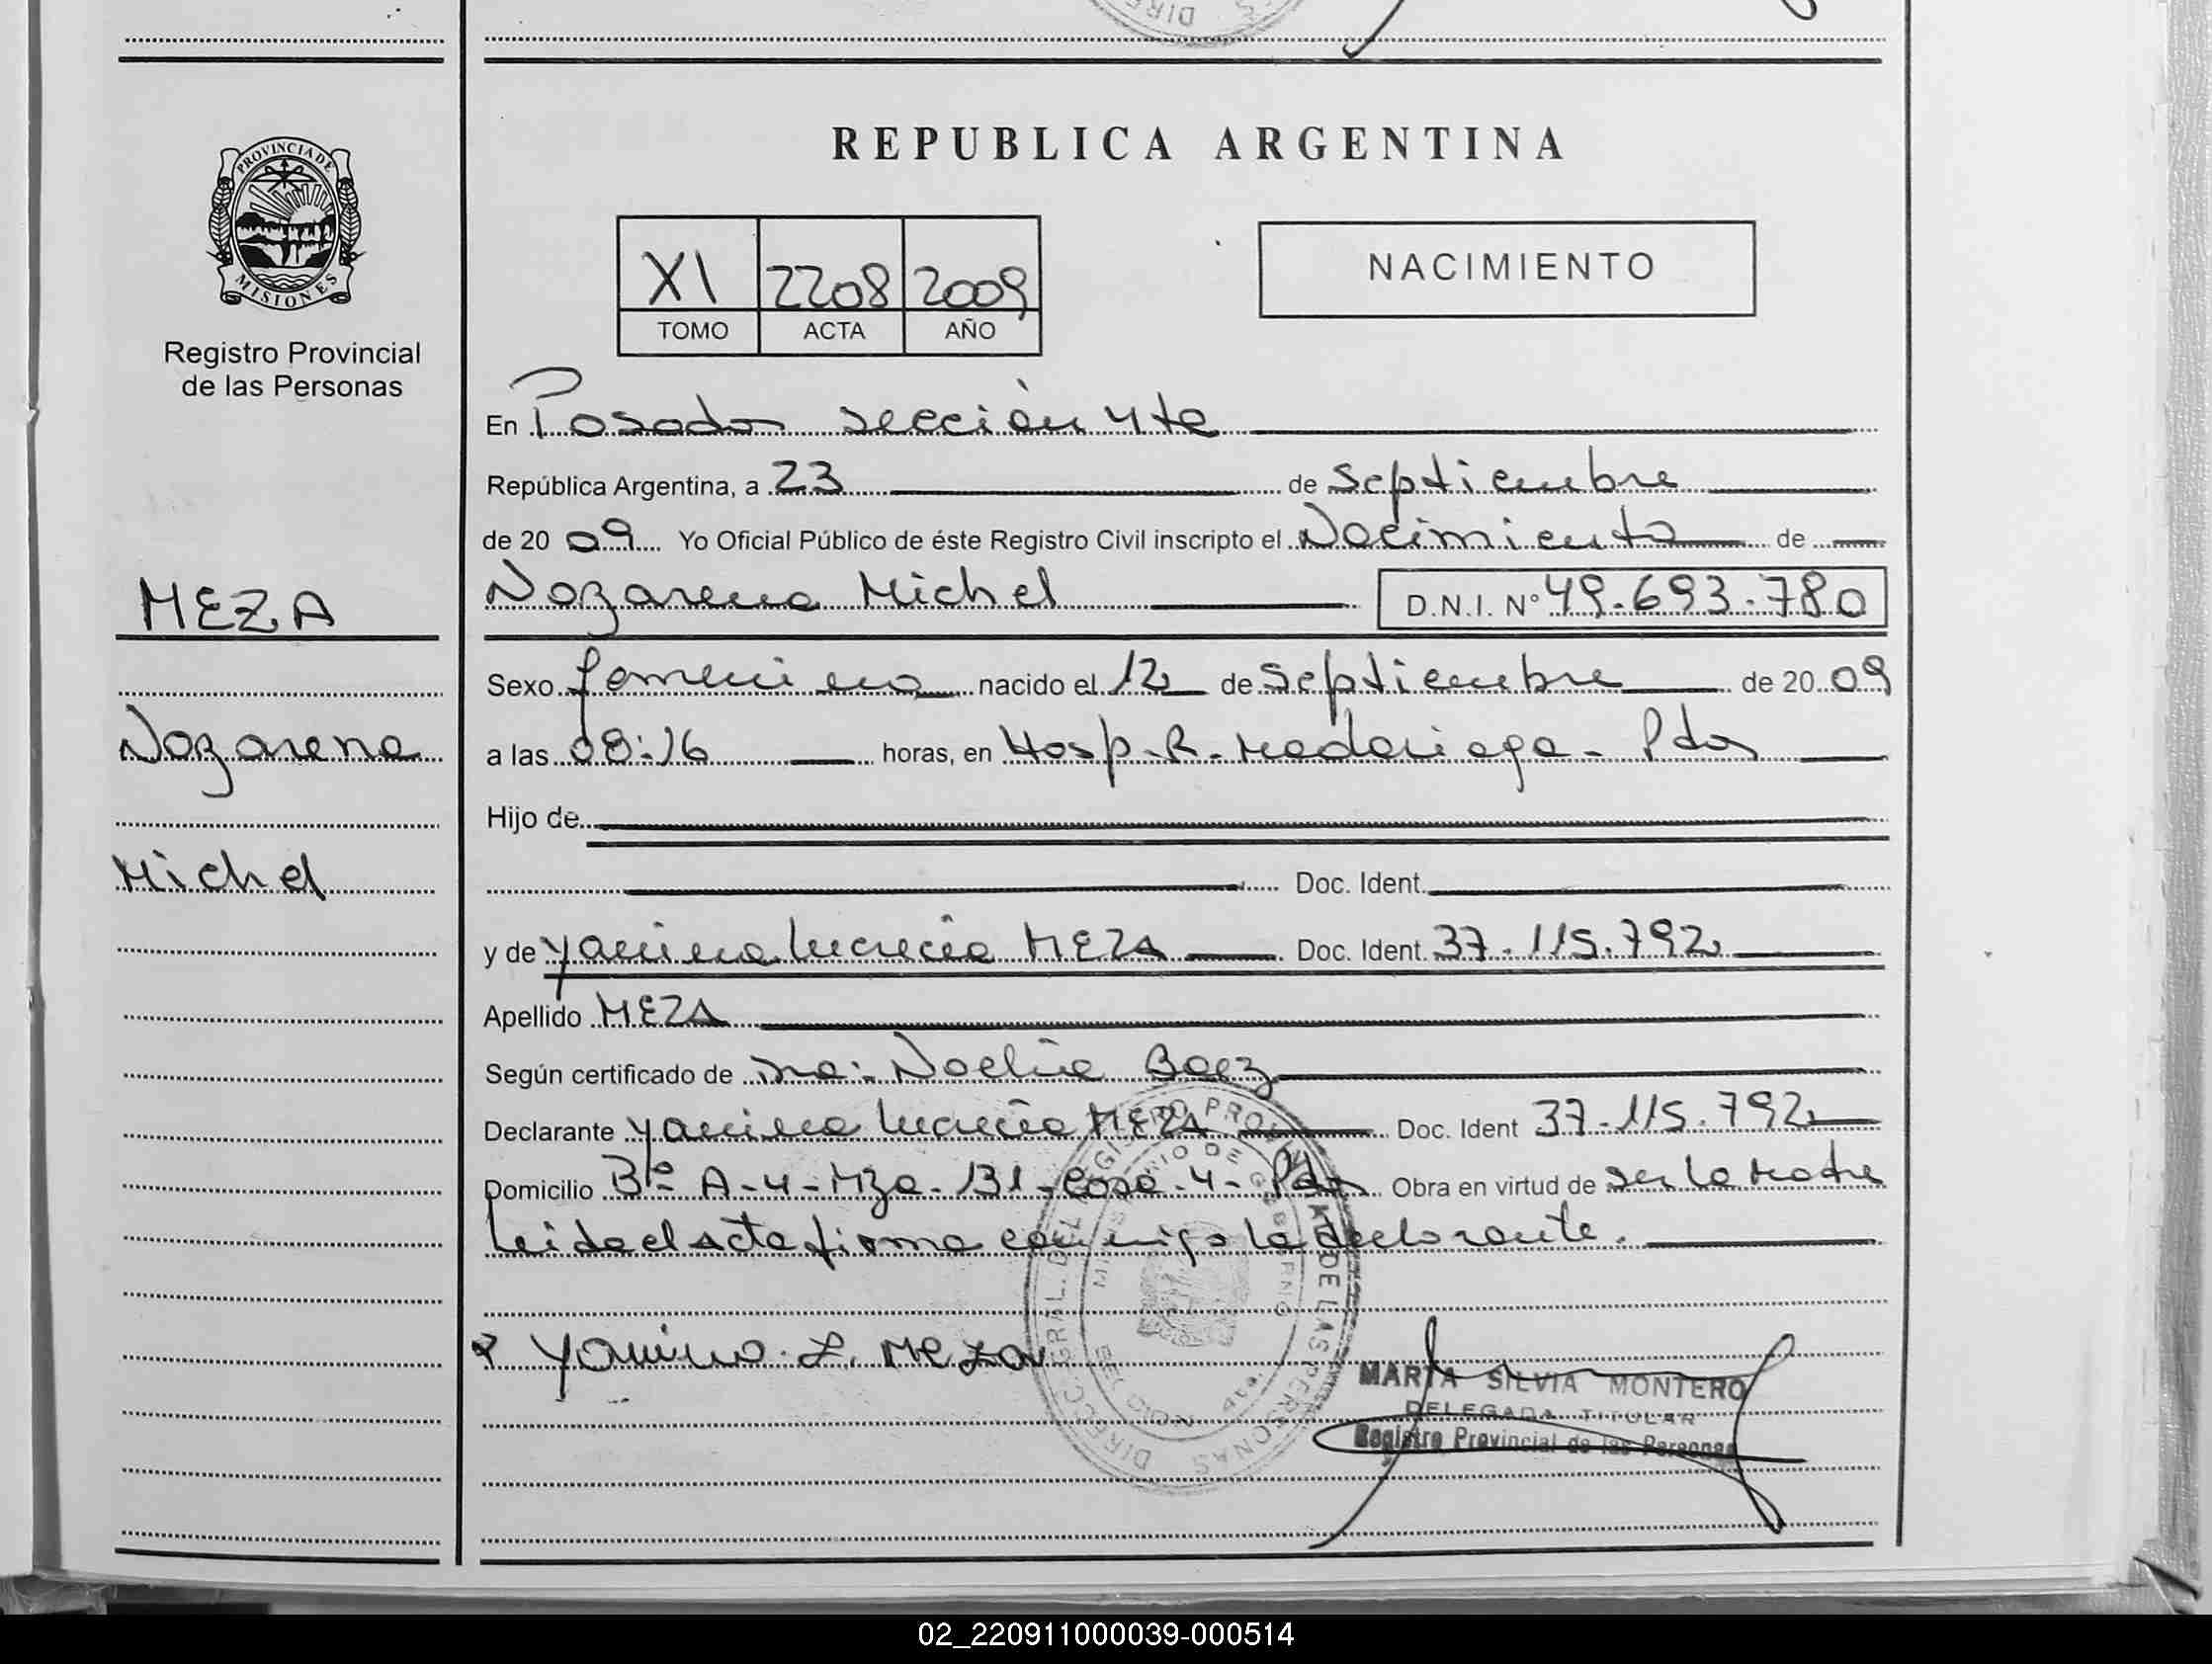 REPUBLICA ARGENTINA
PROVINCIA DE
MISIONES
Registro Provincial
de las Personas
XI 2208 2009
TOMO ACTA AÑO
NACIMIENTO
En Posadas sección 4ta
República Argentina, a 23 de Septiembre
de 2009 Yo Oficial Público de éste Registro Civil inscripto el Nacimiento de
MEZA
Nazarena Michel D.N.I. Nº 49.693.780
Sexo femenino nacido el 12 de Septiembre de 2009
Nazarena
a las 08:16 horas, en Hosp. R. Madariaga - Pdas
Hijo de
Michel
Doc. Ident.
y de Yamina Lucrecia MEZA Doc. Ident. 37.115.792
Apellido MEZA
Según certificado de Noelia Baez
Declarante Yamina Lucrecia MEZA Doc. Ident 37.115.792
Domicilio Bº A-4-Mza. 131-Casa-4- Pdas Obra en virtud de ser la Madre
Leida el acta firma conmigo la declarante.
Yamina. L. Meza
MARTA SILVIA MONTERO
DELEGADA TITULAR
Registro Provincial de las Personas
02_220911000039-000514